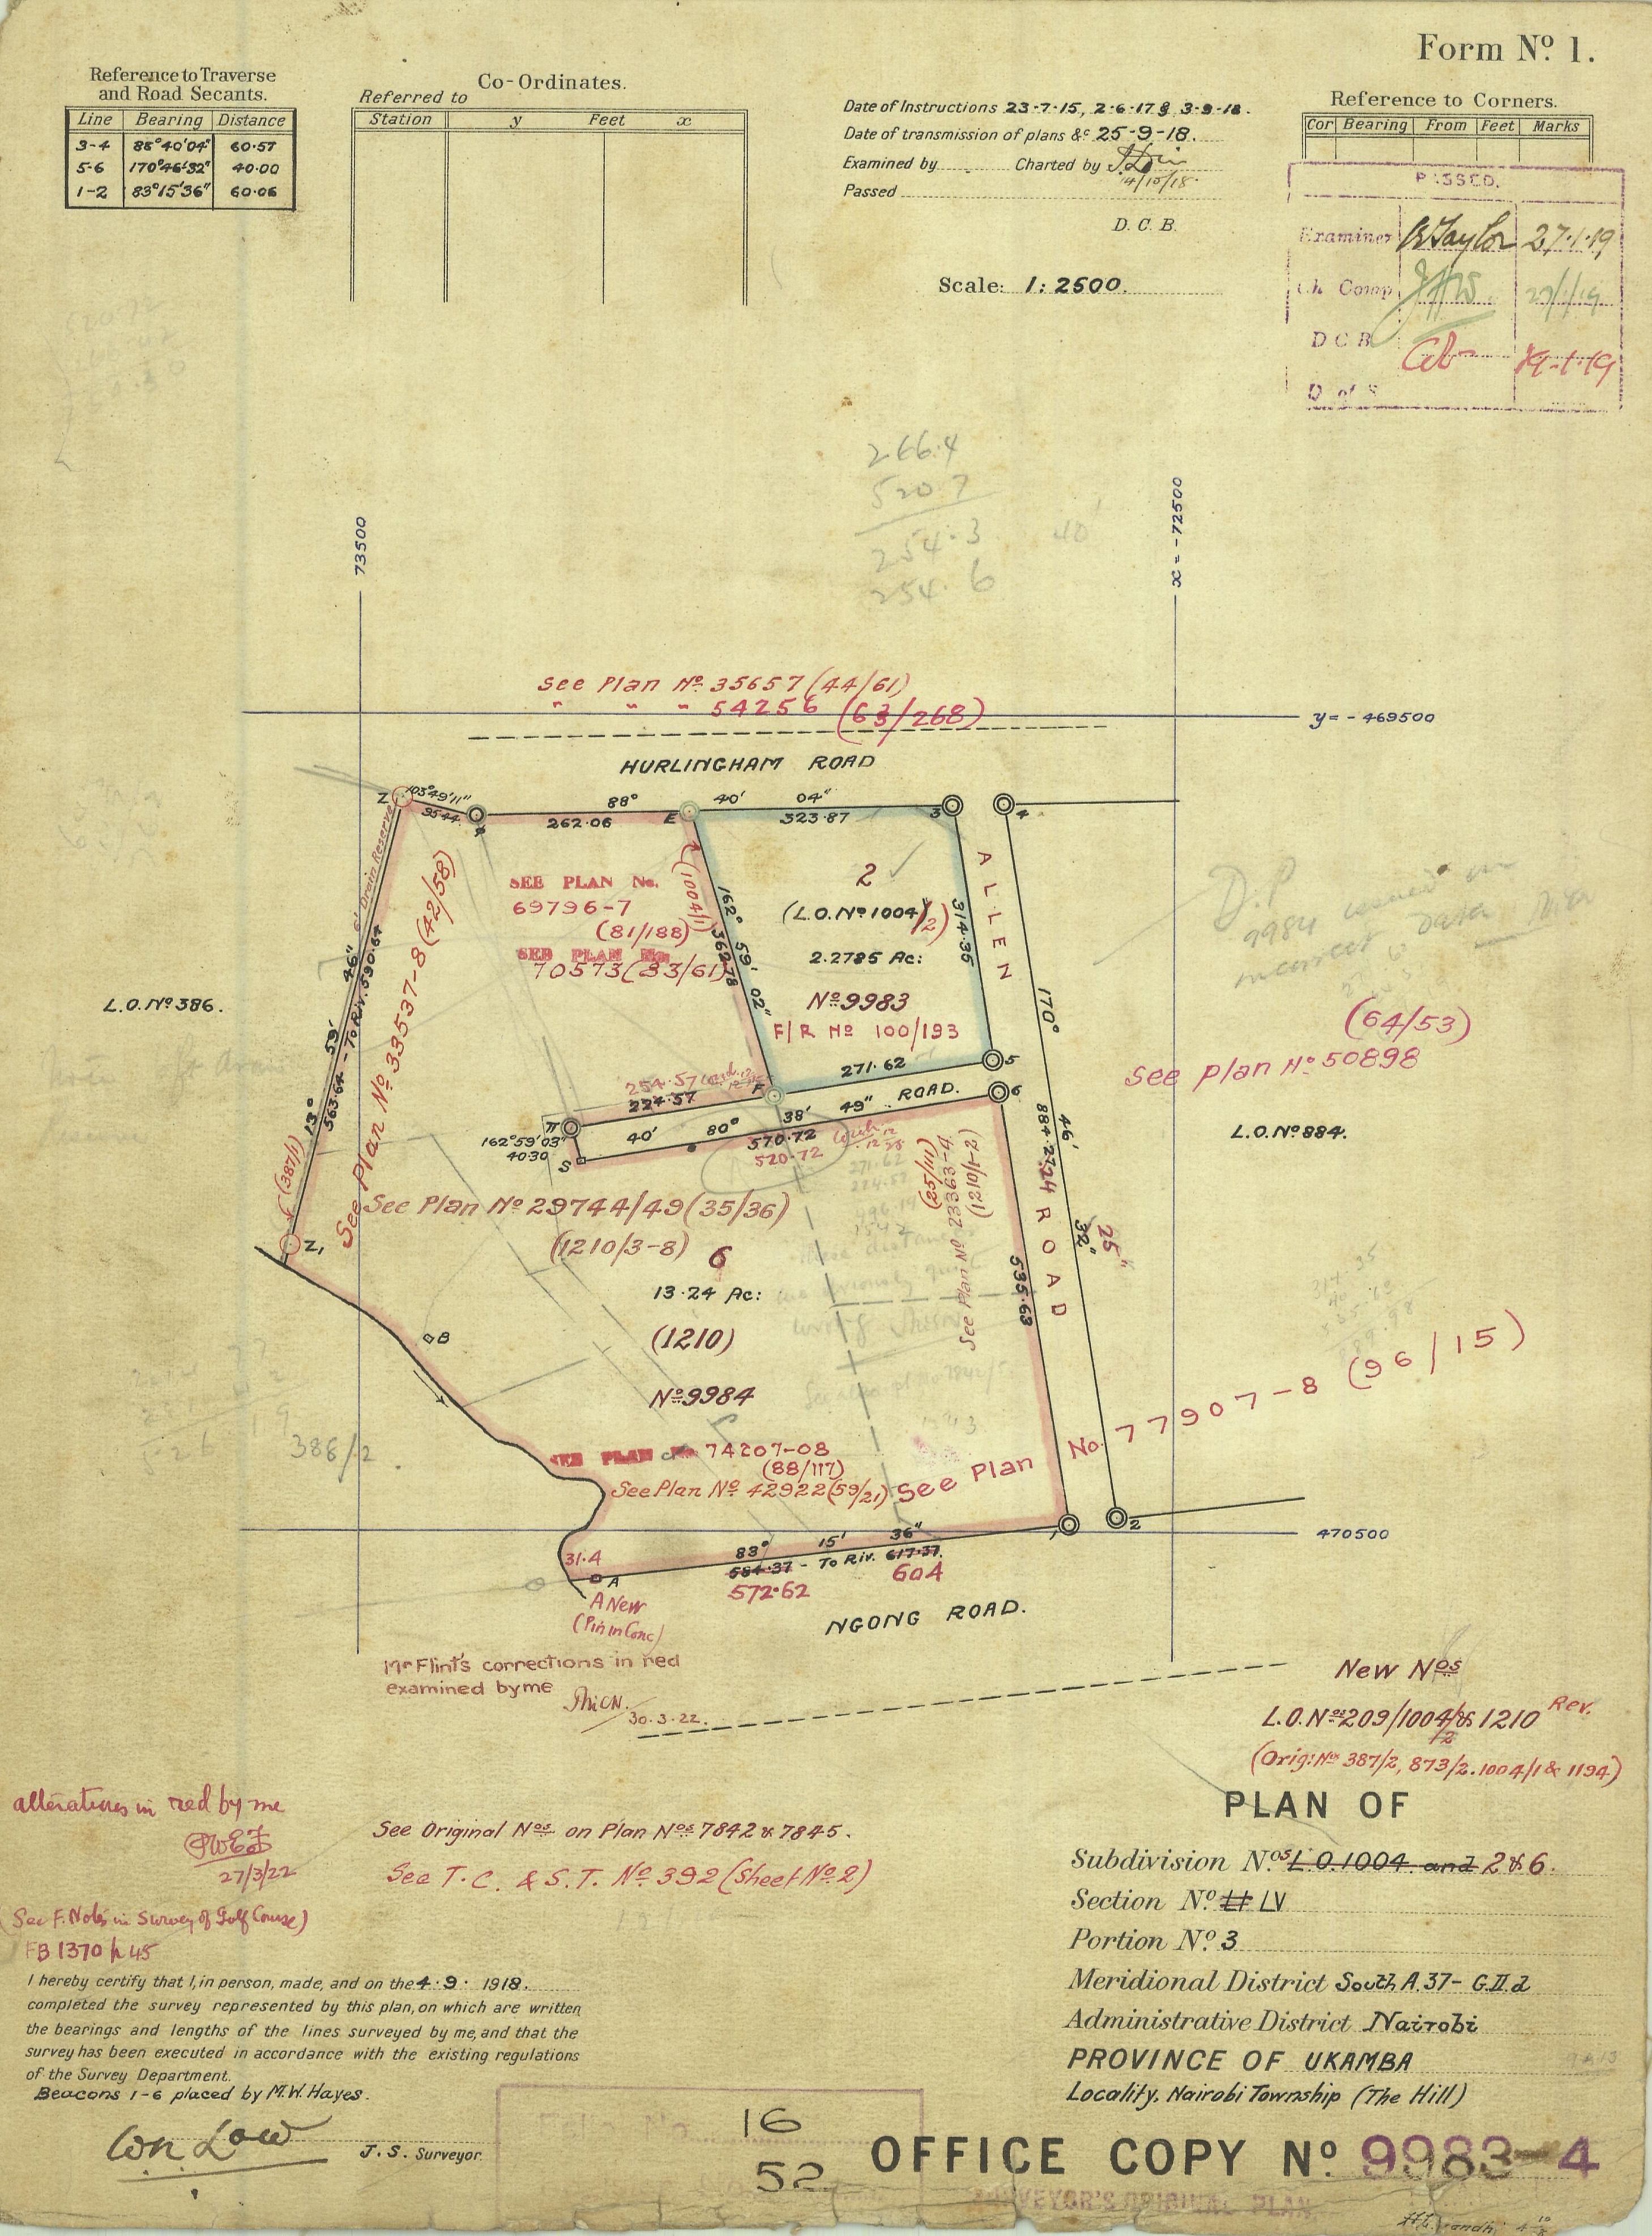 Form Nº 1.
Reference to Traverse
and Road Secants.
Line Bearing Distance
3-4 88°40'04" 60·57
5-6 170°46'32" 40·00
1-2 83°15'36" 60·06
Co-Ordinates.
Referred to
Station y Feet x
Date of Instructions 23-7-15, 2-6-17 & 3-9-18.
Date of transmission of plans &c 25-9-18.
Examined by Charted by
14/10/18.
Passed
D. C. B.
Scale: 1:2500.
Reference to Corners.
Cor Bearing From Feet Marks
PASSED.
Examiner BTaylor 27·1·19
Ch Comp 27/1/19
D C B 29-1-19
D of S
266.4
520 7
254·3 40'
254·6
73500
x = -72500
See Plan Nº 35657 (44/61)
" " " 54256 (63/268)
y = - 469500
HURLINGHAM ROAD
Z 103°49'11"
95·44
88° 40' 04"
262·06 E 323·87 3 4
6' Drain Reserve
See Plan Nº 33537-8 (42/58)
SEE PLAN No.
69796-7
(81/188)
SEE PLAN No.
70573 (83/61)
(1004/1)
162° 59' 02"
362·78
2
(L.O. Nº 1004/2)
2·2785 Ac:
Nº 9983
F/R Nº 100/193
314·35
ALLEN ROAD
170° 46' 32"
25"
884·27
.24
L.O. Nº 386.
13° 59' 46"
563·64 - To Riv. 590·64
(387/1)
254·57
224·57
F 271·62 5
6
ROAD.
π
162°59'03"
40·30
S
40' 80° 38' 49"
570·72
520·72
D.P
9984
(64/53)
See plan Nº 50898
L.O. Nº 884.
(25/11)
See Plan Nº 23363-4
(1210/1-2)
See Plan Nº 29744/49 (35/36)
(1210/3-8)
6
13·24 Ac:
(1210)
Nº 9984
535·63
Z1
B
386/2
SEE PLAN No 74207-08
(88/117)
See Plan Nº 42922 (59/21)
See Plan No. 77907-8 (96/15)
1 2
470500
31·4
A
83° 15' 36"
584·37 - To Riv. 617·37.
572·62 604
A New
(Pin in Conc)
NGONG ROAD.
Mr Flint's corrections in red
examined by me
30·3·22.
New Nos
L.O. Nos 209/1004/2 & 1210 Rev.
(Orig: Nos 387/2, 873/2. 1004/1 & 1194)
alterations in red by me
27/3/22
(See F. Notes in Survey of Golf Course)
FB 1370 p 45
See Original Nos on Plan Nos 7842 & 7845.
See T.C. & S.T. Nº 392 (Sheet Nº 2)
PLAN OF
Subdivision Nos L.O. 1004 and 2 & 6.
Section Nº LV
Portion Nº 3
Meridional District South A.37- G.II.d
Administrative District Nairobi
PROVINCE OF UKAMBA
Locality, Nairobi Township (The Hill)
I hereby certify that I, in person, made, and on the 4·9· 1918.
completed the survey represented by this plan, on which are written
the bearings and lengths of the lines surveyed by me, and that the
survey has been executed in accordance with the existing regulations
of the Survey Department.
Beacons 1-6 placed by M.W. Hayes.
Wn Low
J. S. Surveyor
Folio No. 16
52
OFFICE COPY Nº 9983-4
SURVEYOR'S ORIGINAL PLAN